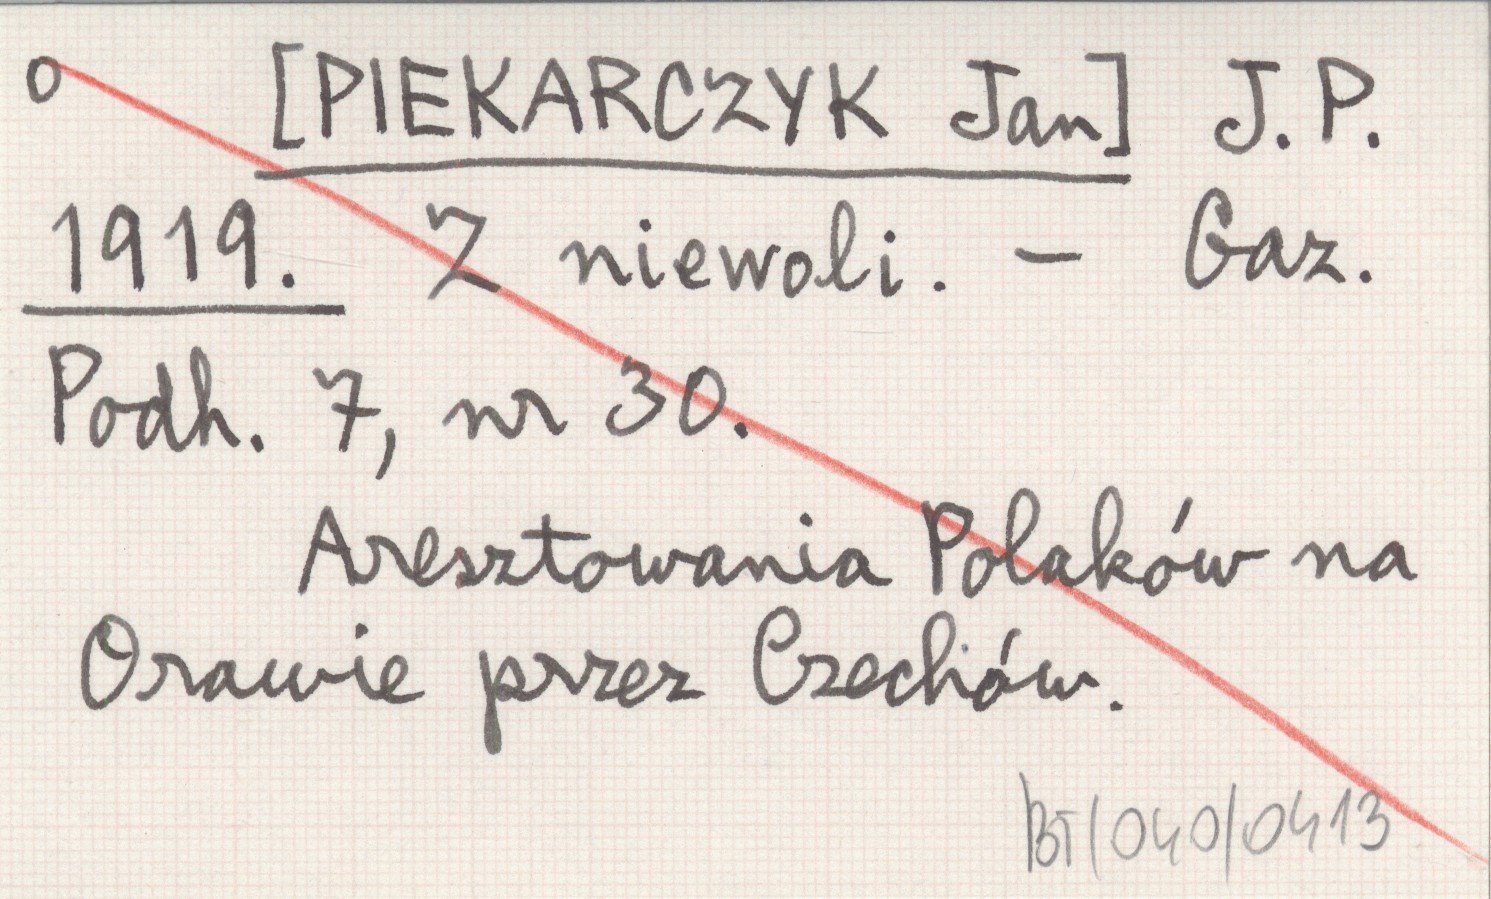 O [PIEKARCZYK Jan] J.P.
1919. Z niewoli. – Gaz.
Podh. 7, nr 30.
Aresztowania Polaków na
Orawie przez Czechów.
BT/040/0413